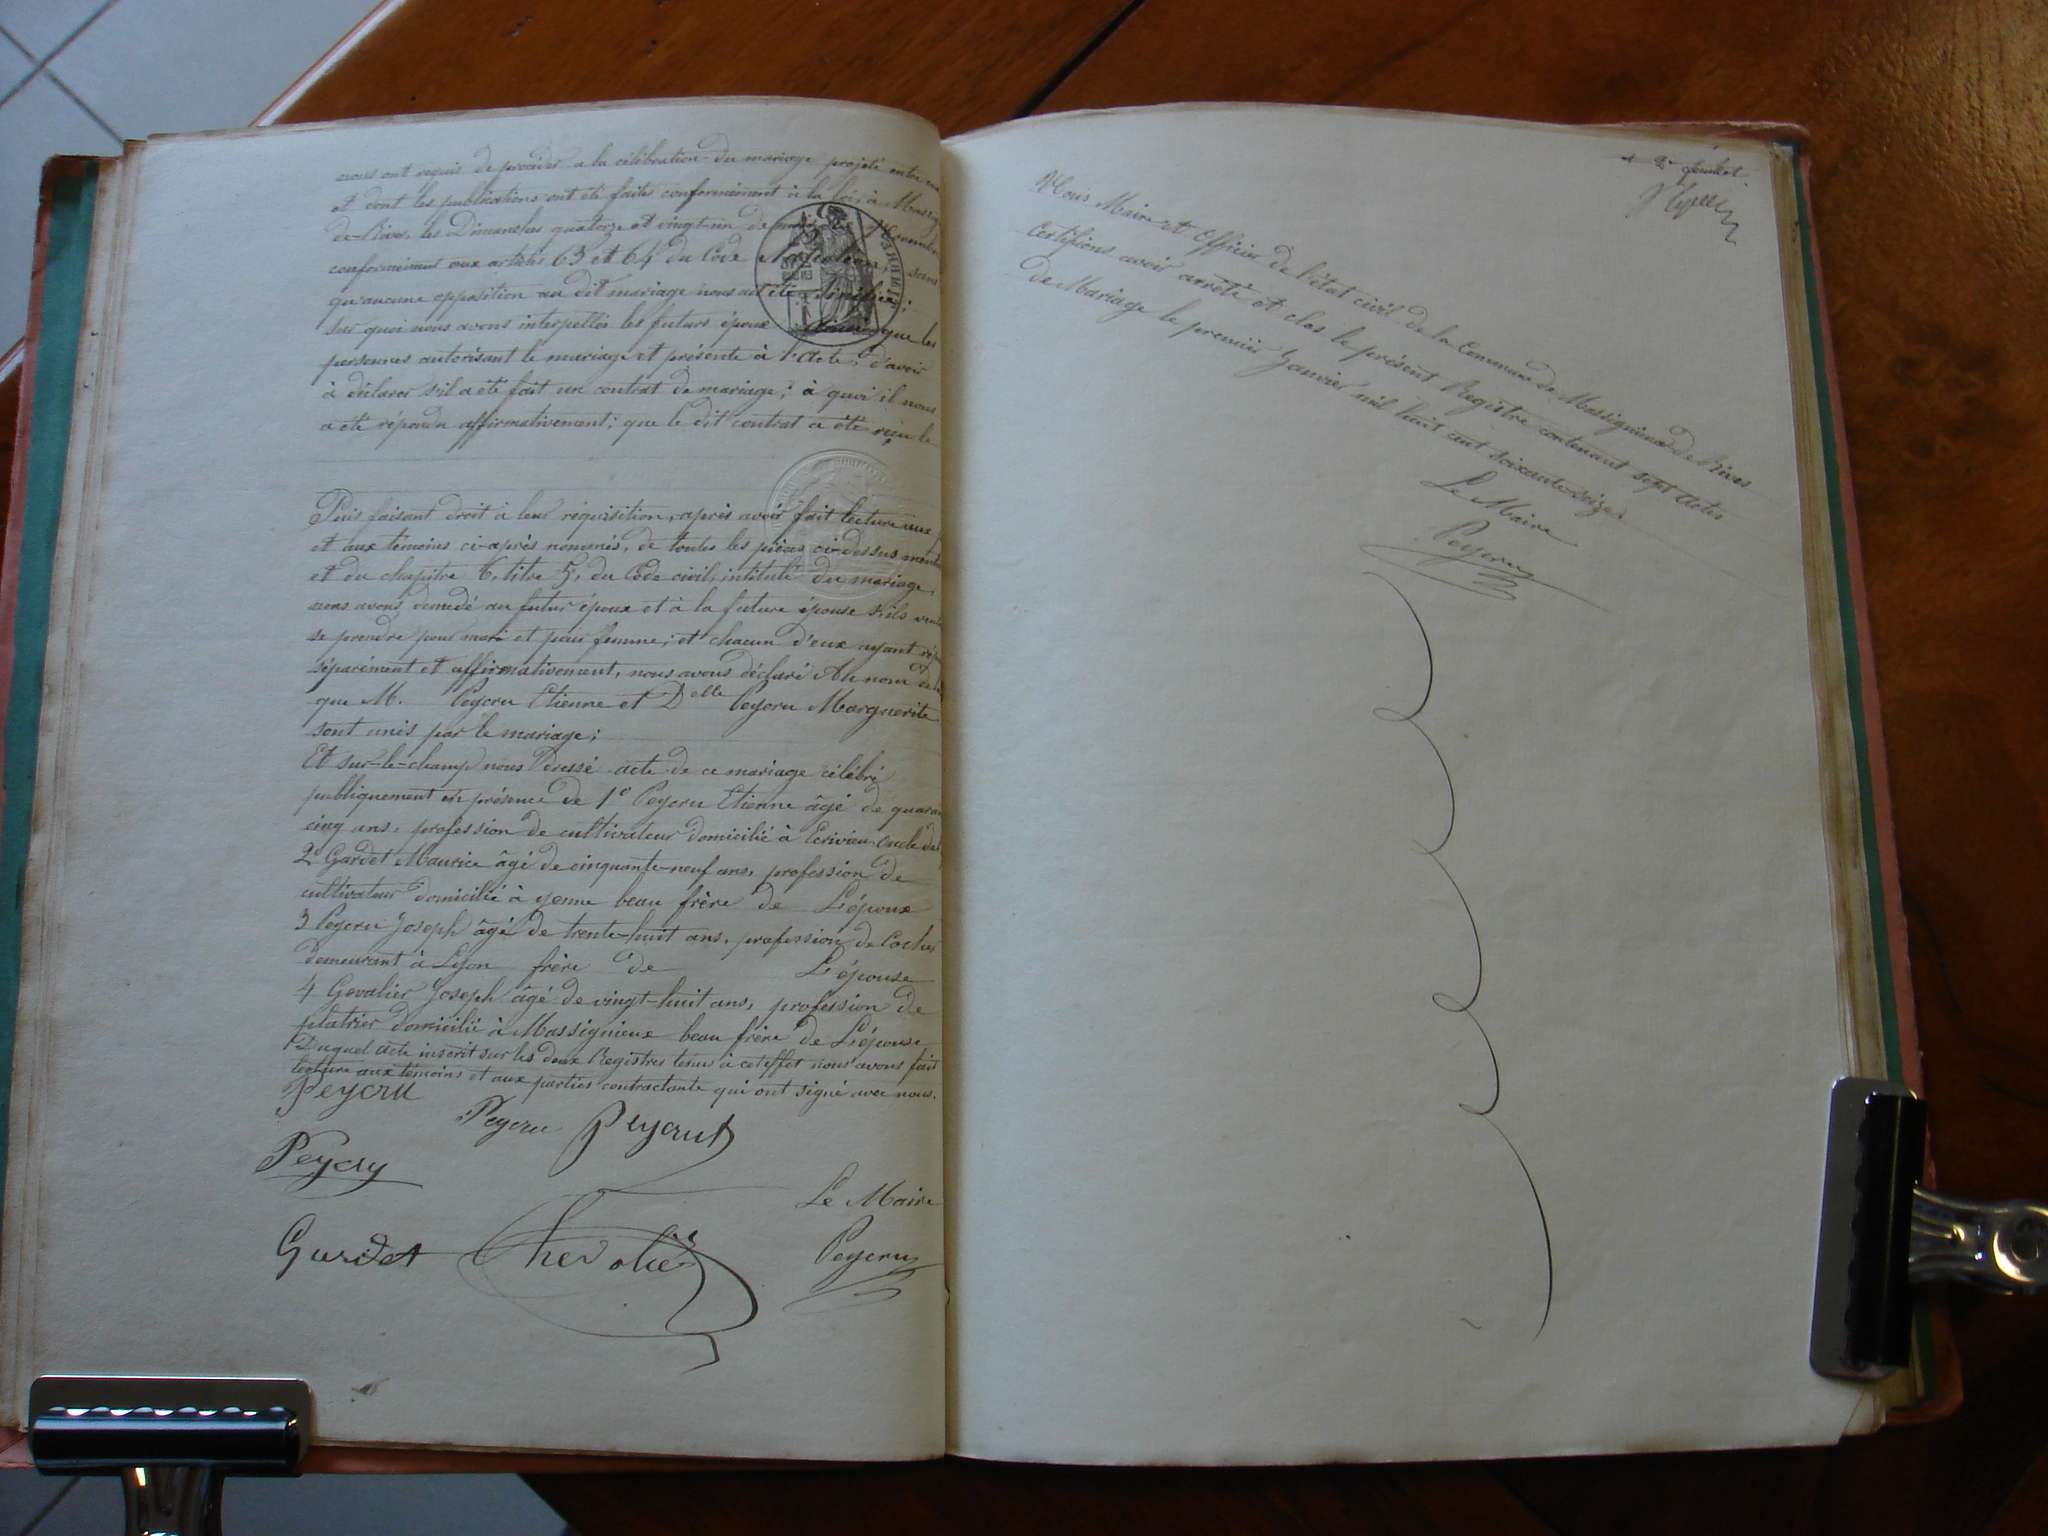 nous ont requis de procéder a la célébration du mariage projeté entre eux
et dont les publications ont été faites conformément à la loi, à Massig
de Rives, les Dimanches quatorze et vingt-un de mois Novembre
conformément aux articles 63 et 64 du Code Napoléon, sans
qu'aucune opposition au dit mariage nous ait été
sur quoi nous avons interpellés les futurs époux ainsi que les
personnes autorisant le mariage et présente à l'acte, d'avoir
à déclarer s'il a été fait un contrat de mariage; à quoi il nous
a été répondu affirmativement; que le dit contrat a été reçu le
Puis faisant droit à leur réquisition, après avoir fait lecture aux
et aux témoins ci-après nommés, de toutes les pièces ci-dessus ment
et du chapitre 6, titre 5, du Code civil, intitulé du mariage,
nous avons demedé au futur époux et à la future épouse s'ils veule
se prendre pour mari et pour femme; et chacun d'eux ayant répon
séparément et affirmativement, nous avons déclaré Au nom de la
que M. Peycru Etienne et Delle Peycru Marguerite
sont unis par le mariage;
Et sur-le-champ nous Dressé acte de ce mariage célébré
publiquement en présence de 1° Peycru Etienne âgé de quaran
cinq ans, profession de cultivateur domicilié à Ecrivieu oncle de
2° Gardet Maurice âgé de cinquante-neuf ans, profession de
cultivateur domicilié à yenne beau frère de L'époux
3 Peycru Joseph âgé de trente-huit ans, profession de Cocher
demeurant à Lyon frère de L'épouse
4 Gevalier Joseph âgé de vingt-huit ans, profession de
platrier domicilié à Massignieux beau frère de L'épouse
Duquel acte inscrit sur les deux Registres tenus à cet effet nous avons fait
lecture aux témoins et aux parties contractante qui ont signé avec nous.
Peycru
Peycru Peycrut
Peycru
Le Maire
Gardet Chevolier Peycru
2e feuillet
Nous Maire et Officier de l'état civil de la Commune de Massignieux de Rives
Certifions avoir arrêté et clos le présent Registre contenant sept Actes
de Mariage le premier Janvier mil huit cent soixante-seize.
Le Maire
Peycru